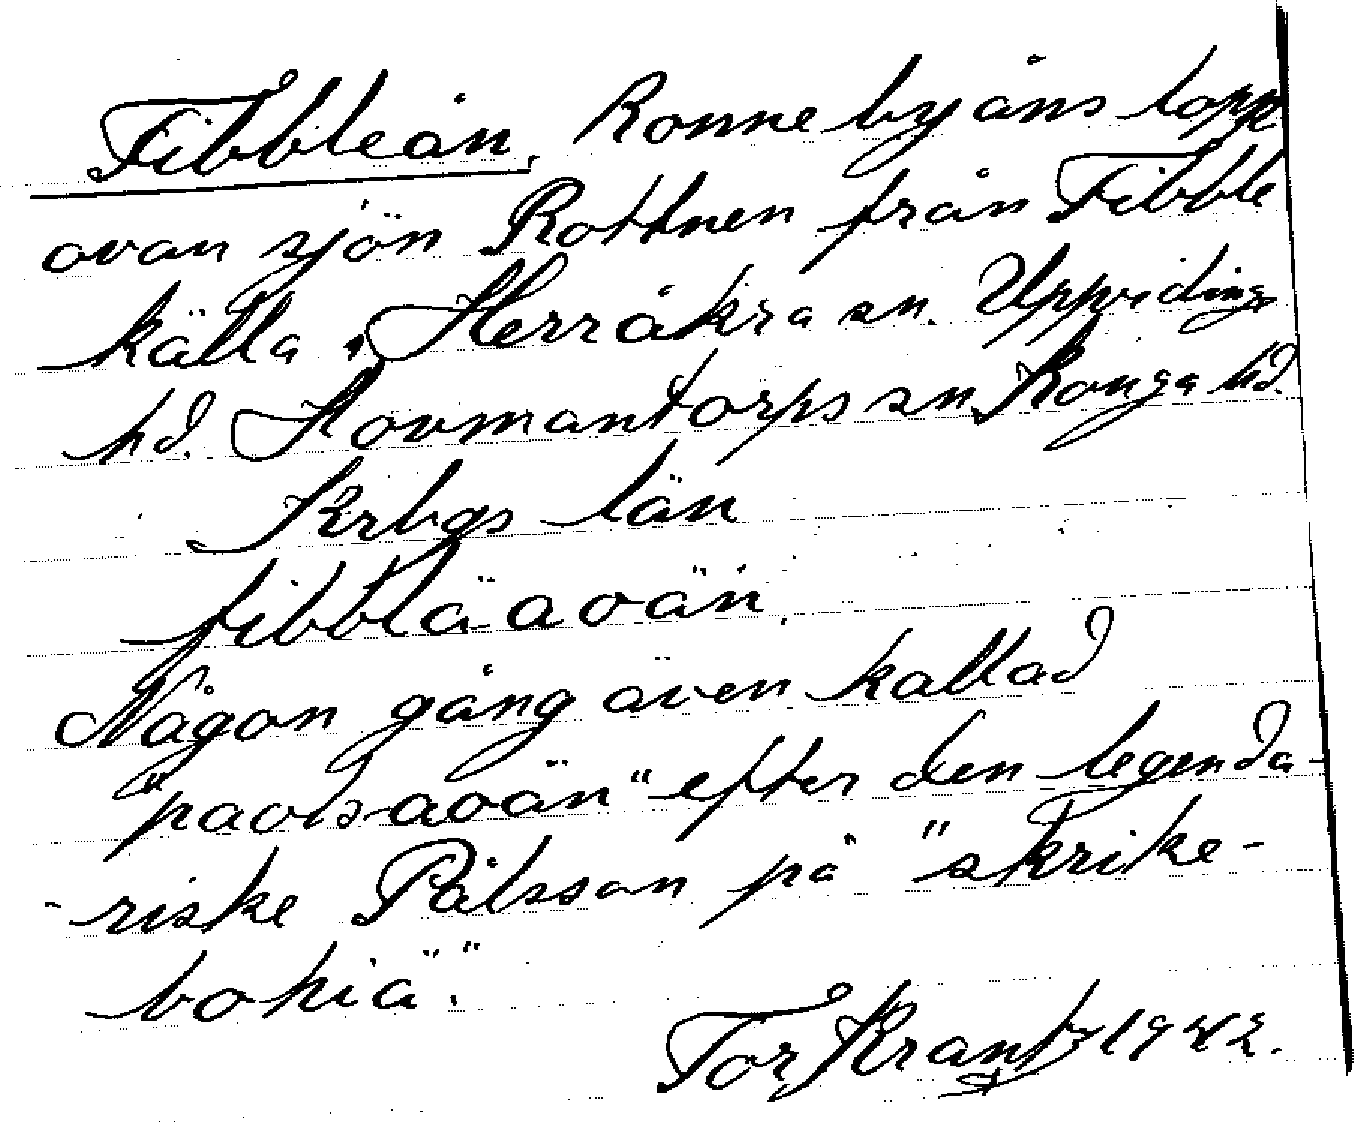 Fibbleån, Ronnebyåns lopp
ovan sjön Rottnen från Fibble
källa, Herråkra sn. Uppvidinge
hd. Hovmantorps sn Konga hd.
Krbgs län
fibblä aoän.
Någon gång även kallad
"paolsaoän" efter den legenda-
-riske Pålsson på "skrike-
bohiä".
Tor Krantz 1942.